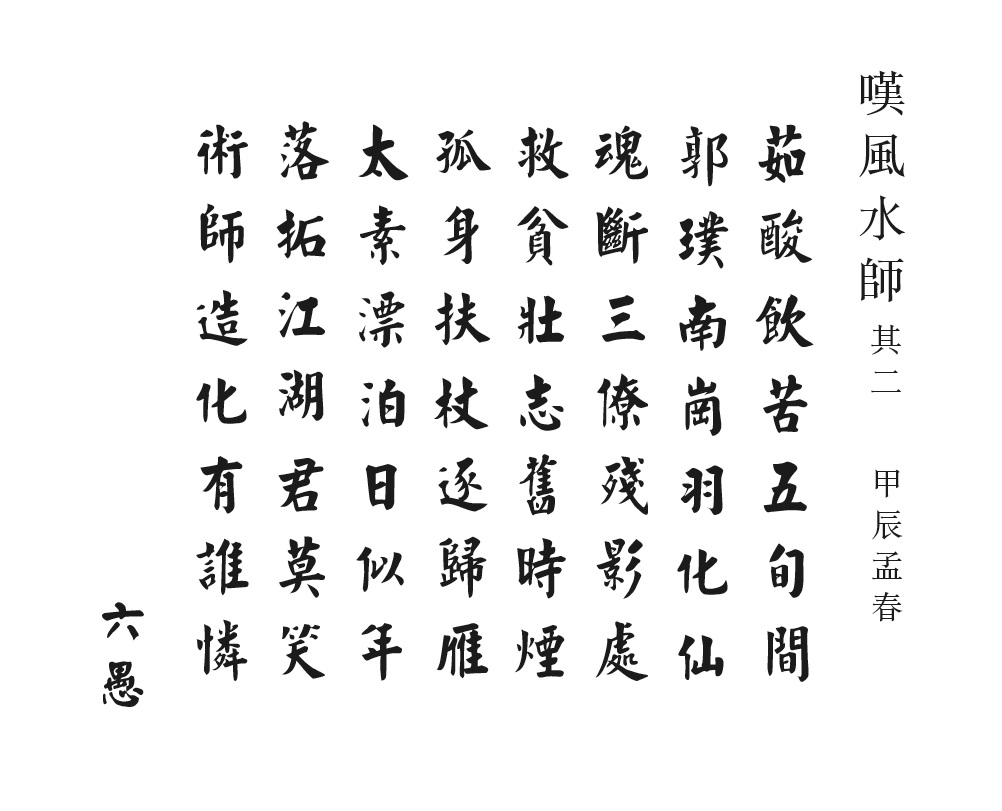 嘆風水師 其二 甲辰孟春
茹酸飲苦五旬間
郭璞南崗羽化仙
魂斷三僚殘影處
救貧壯志舊時煙
孤身扶杖逐歸雁
太素漂泊日似年
落拓江湖君莫笑
術師造化有誰憐
六愚